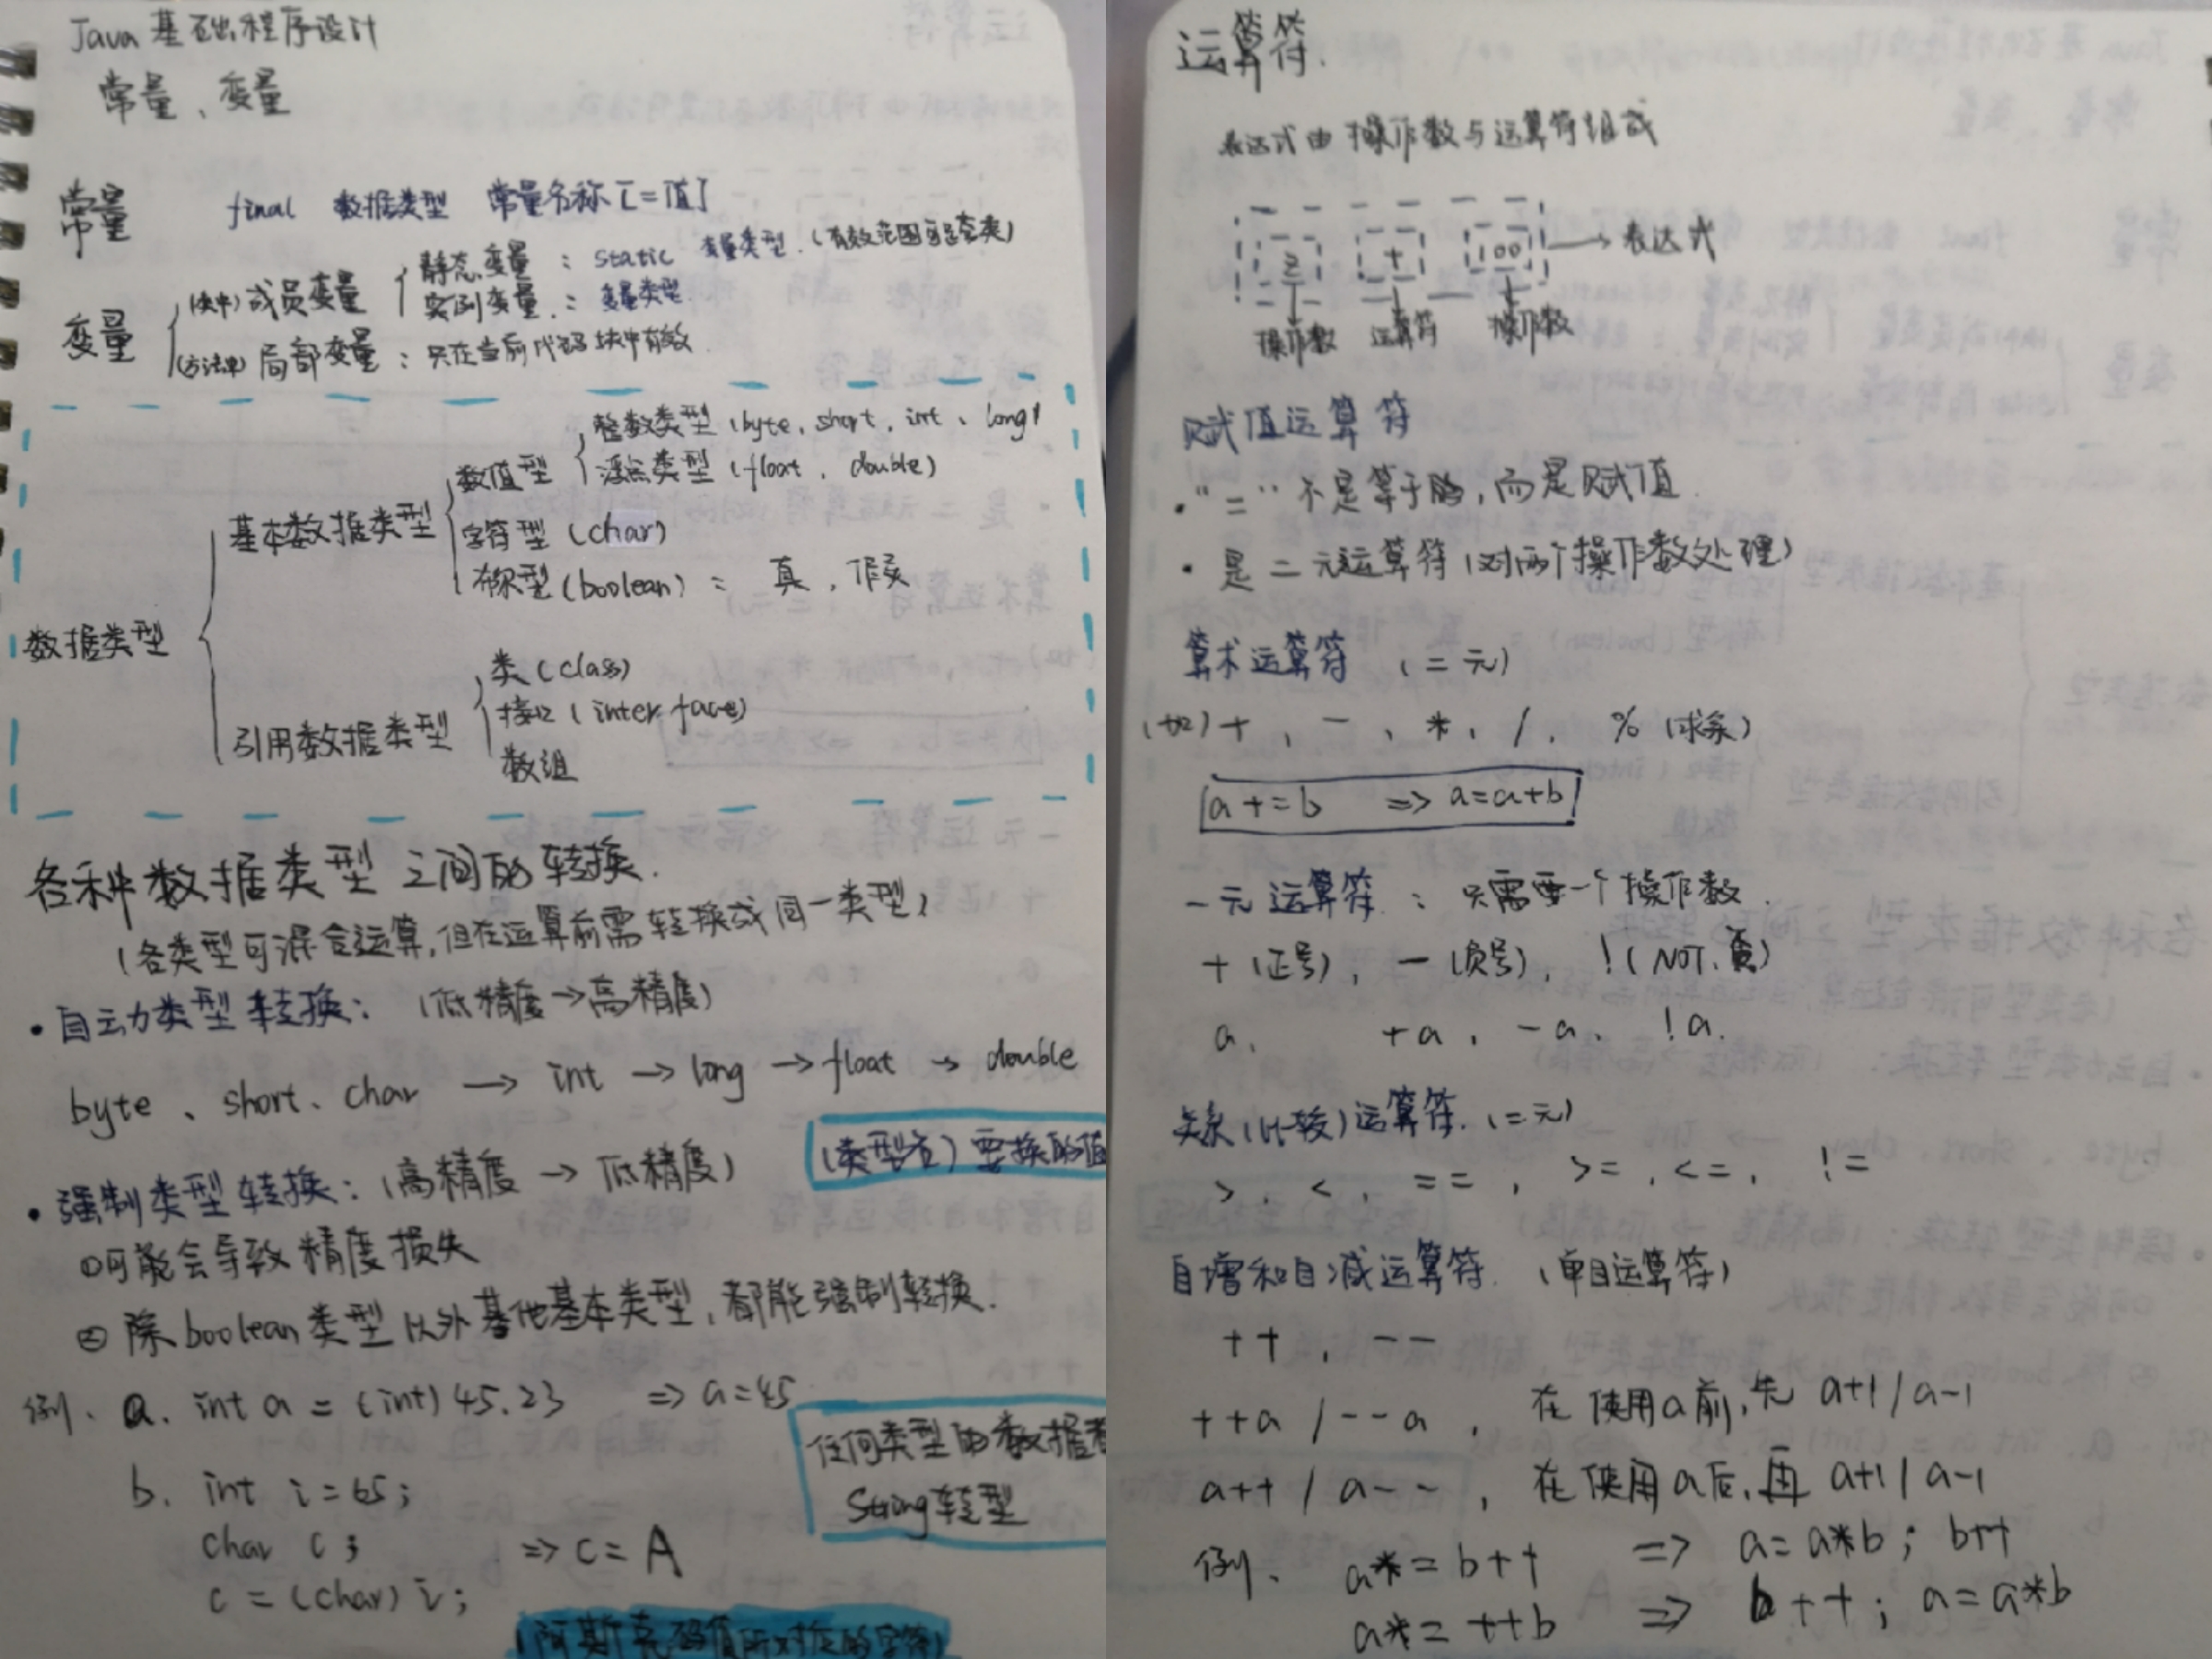 Java 基础程序设计
常量、变量
常量 final 数据类型 常量名称[=值]
变量
(类中) 成员变量
静态变量：static 变量类型.(有效范围可是整类)
实例变量：变量类型
(方法中) 局部变量：只在当前代码块中有效
数据类型
基本数据类型
数值型
整数类型 (byte、short、int、long)
浮点类型 (float、double)
字符型 (char)
布尔型 (boolean)： 真，假
引用数据类型
类 (class)
接口 (interface)
数组
各种数据类型之间的转换.
(各类型可混合运算,但在运算前需转换成同一类型)
• 自动类型转换： (低精度→高精度)
byte、short、char → int → long → float → double
(类型名) 要换的值
• 强制类型转换：(高精度 → 低精度)
①可能会导致精度损失
② 除boolean类型以外其他基本类型,都能强制转换.
例、a. int a = (int) 45.23 => a=45
任何类型的数据
String转型
b. int i = 65;
char c; => c = A
c = (char) i;
(阿斯克码值所对应的字符)
运算符.
表达式由操作数与运算符组成
2 + 100 → 表达式
操作数 运算符 操作数
赋值运算符
• "=" 不是等于的,而是赋值
• 是二元运算符 (对两个操作数处理)
算术运算符 (二元)
(如) +、-、*、/、%(求余)
a+=b => a=a+b
一元运算符：只需要一个操作数.
+(正号)，-(负号)，!(NOT、
a. +a，-a、!a.
关系(比较)运算符.(二元)
>，<，==，>=，<=，!=
自增和自减运算符.(单目运算符)
++，--
++a / --a，在使用a前,先 a+1 / a-1
a++ / a--，在使用a后,再 a+1 / a-1
例、a*= b++ => a=a*b; b++
a*= ++b => b++; a=a*b